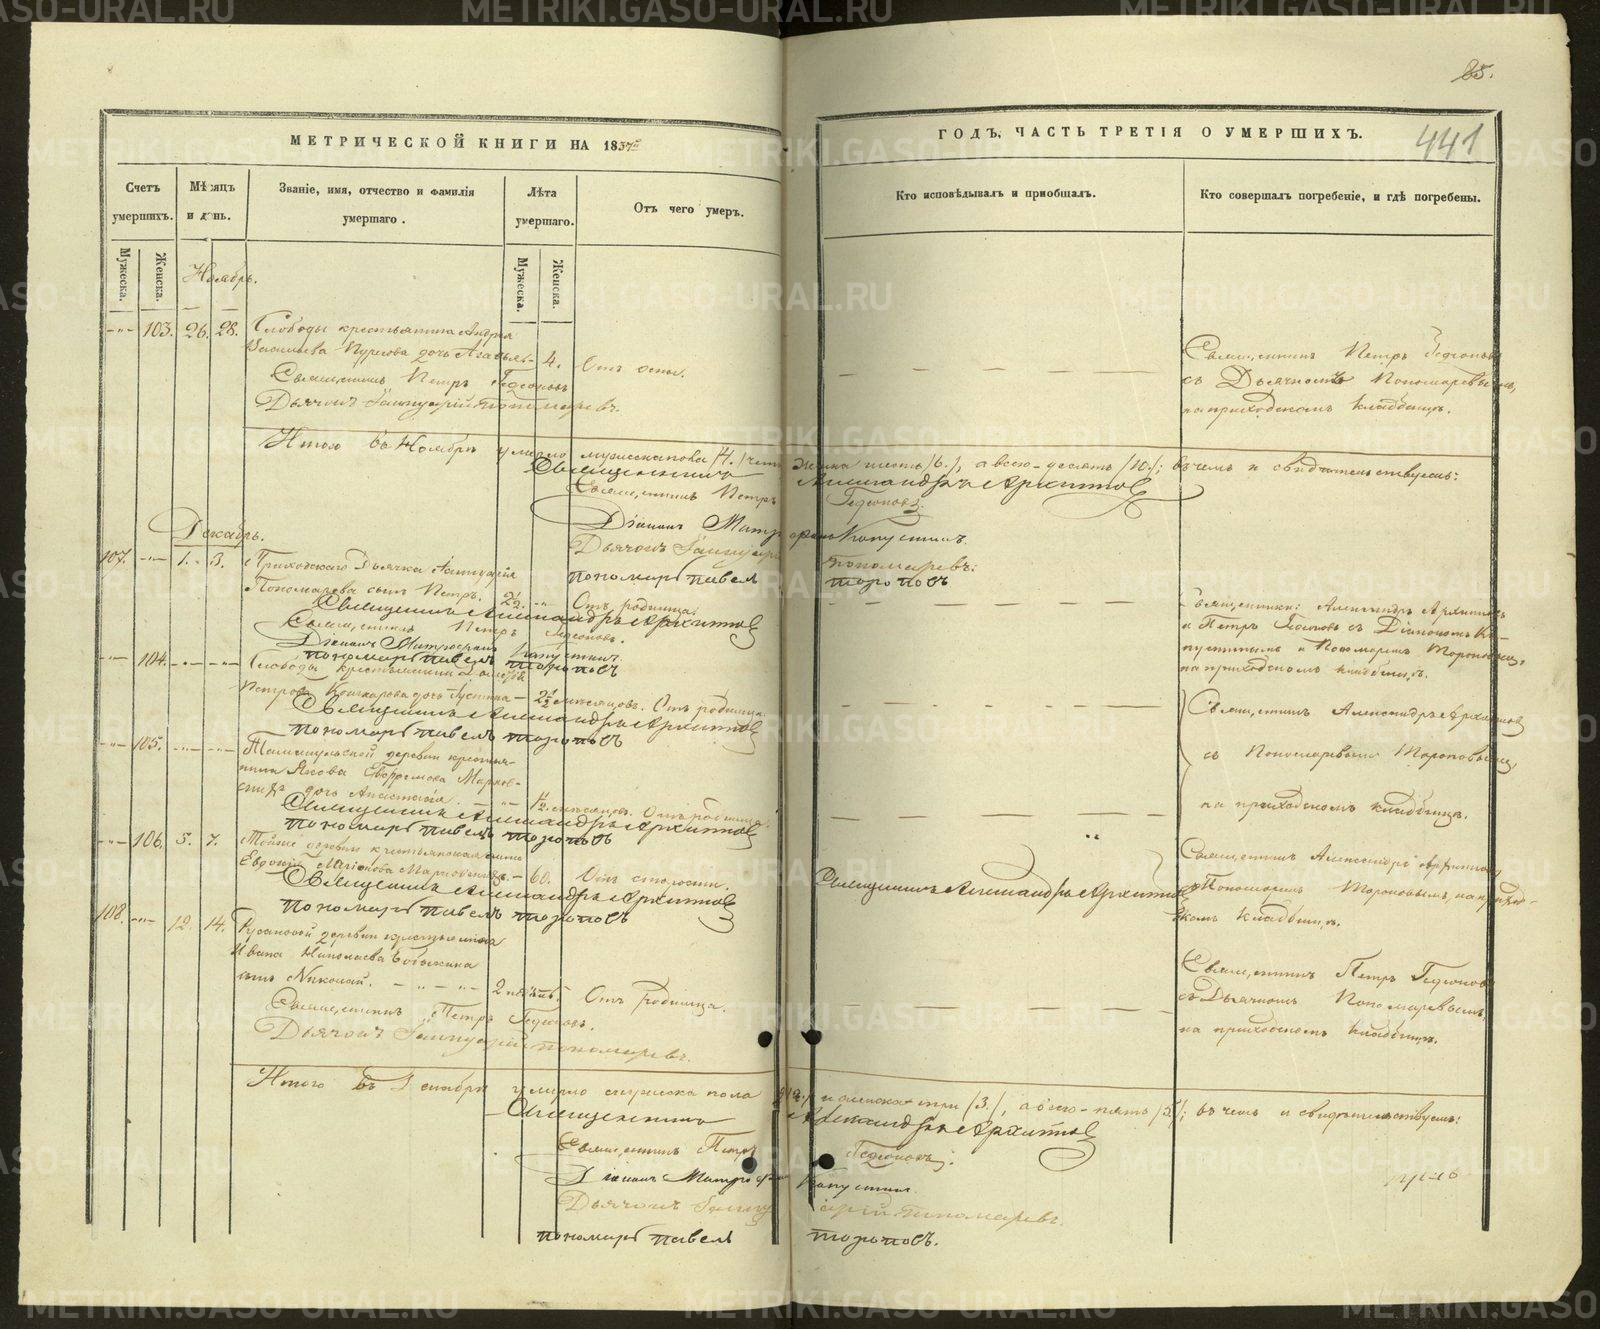 85.
МЕТРИЧЕСКОЙ КНИГИ НА 1837й
ГОДЪ, ЧАСТЬ ТРЕТІЯ О УМЕРШИХЪ.
441
Счетъ умершихъ.
Мѣсяцъ и день.
Званіе, имя, отчество и фамилія умершаго.
Лѣта умершаго.
Отъ чего умеръ.
Кто исповѣдывалъ и пріобщалъ.
Кто совершалъ погребеніе, и гдѣ погребены.
Мужеска.
Женска.
Мужеска.
Женска.
Ноябрь.
103. 26. 28. Слободы крестьянина Андрея
Васильева дочь 4. Отъ оспы.
Священникъ Петръ Гедеоновъ
Дьячокъ Іаннуарій Пономаревъ.
Священникъ Петръ Гедеоновъ
съ Дьячкомъ Пономаревымъ,
на приходскомъ кладбищѣ.
Итого въ Ноябрѣ умерло мужеска пола /4./ женска шесть /6./, а всего десять /10./; въ чемъ и свидѣтельствуемъ:
Священникъ Александръ Архиповъ
Священникъ Петръ Гедеоновъ.
Діаконъ Митрофанъ Капустинъ
Дьячокъ Іаннуарій Пономаревъ.
пономарь павелъ тороповъ
Декабрь.
107. 1. 3. Приходскаго Дьячка Іаннуарія
Пономарева сынъ Петръ. 2½. Отъ родимца.
Священникъ Александръ Архиповъ
Священникъ Петръ Гедеоновъ.
Діаконъ Митрофанъ Капустинъ
пономарь павелъ тороповъ
Священники: Александръ Архиповъ
и Петръ Гедеоновъ съ Діакономъ Ка-
пустинымъ и Пономаремъ Тороповымъ,
на приходскомъ кладбищѣ.
104. Слободы крестьянина
Петрова дочь Іустина 2½ мѣсяцовъ. Отъ родимца.
Священникъ Александръ Архиповъ
пономарь павелъ тороповъ
Священникъ Александръ Архиповъ
съ Пономаремъ Тороповымъ,
на приходскомъ кладбищѣ.
105. деревни крестья-
нина Якова
дочь Анастасія. ½ мѣсяцовъ. Отъ родимца.
Священникъ Александръ Архиповъ
пономарь павелъ тороповъ
106. 5. 7. Тойже деревни крестьянская
60. Отъ старости.
Священникъ Александръ Архиповъ
пономарь павелъ тороповъ
Священникъ Александръ Архиповъ
Священникъ Александръ Архиповъ
съ Пономаремъ Тороповымъ, на приход-
скомъ кладбищѣ.
108. 12. 14. Русаковой деревни крестьянина
Ивана Николаева
сынъ Николай. 2 недѣль. Отъ родимца.
Священникъ Петръ Гедеоновъ.
Дьячокъ Іаннуарій Пономаревъ.
Священникъ Петръ Гедеоновъ
съ Дьячкомъ Пономаревымъ,
на приходскомъ кладбищѣ.
Итого въ Декабрѣ умерло мужеска пола два /2./ и женска три /3./, а всего пять /5./; въ чемъ и свидѣтельствуемъ:
Священникъ Александръ Архиповъ
Священникъ Петръ Гедеоновъ.
Діаконъ Митрофанъ Капустинъ.
Дьячокъ Іаннуарій Пономаревъ.
пономарь павелъ тороповъ.
METRIKI.GASO-URAL.RU